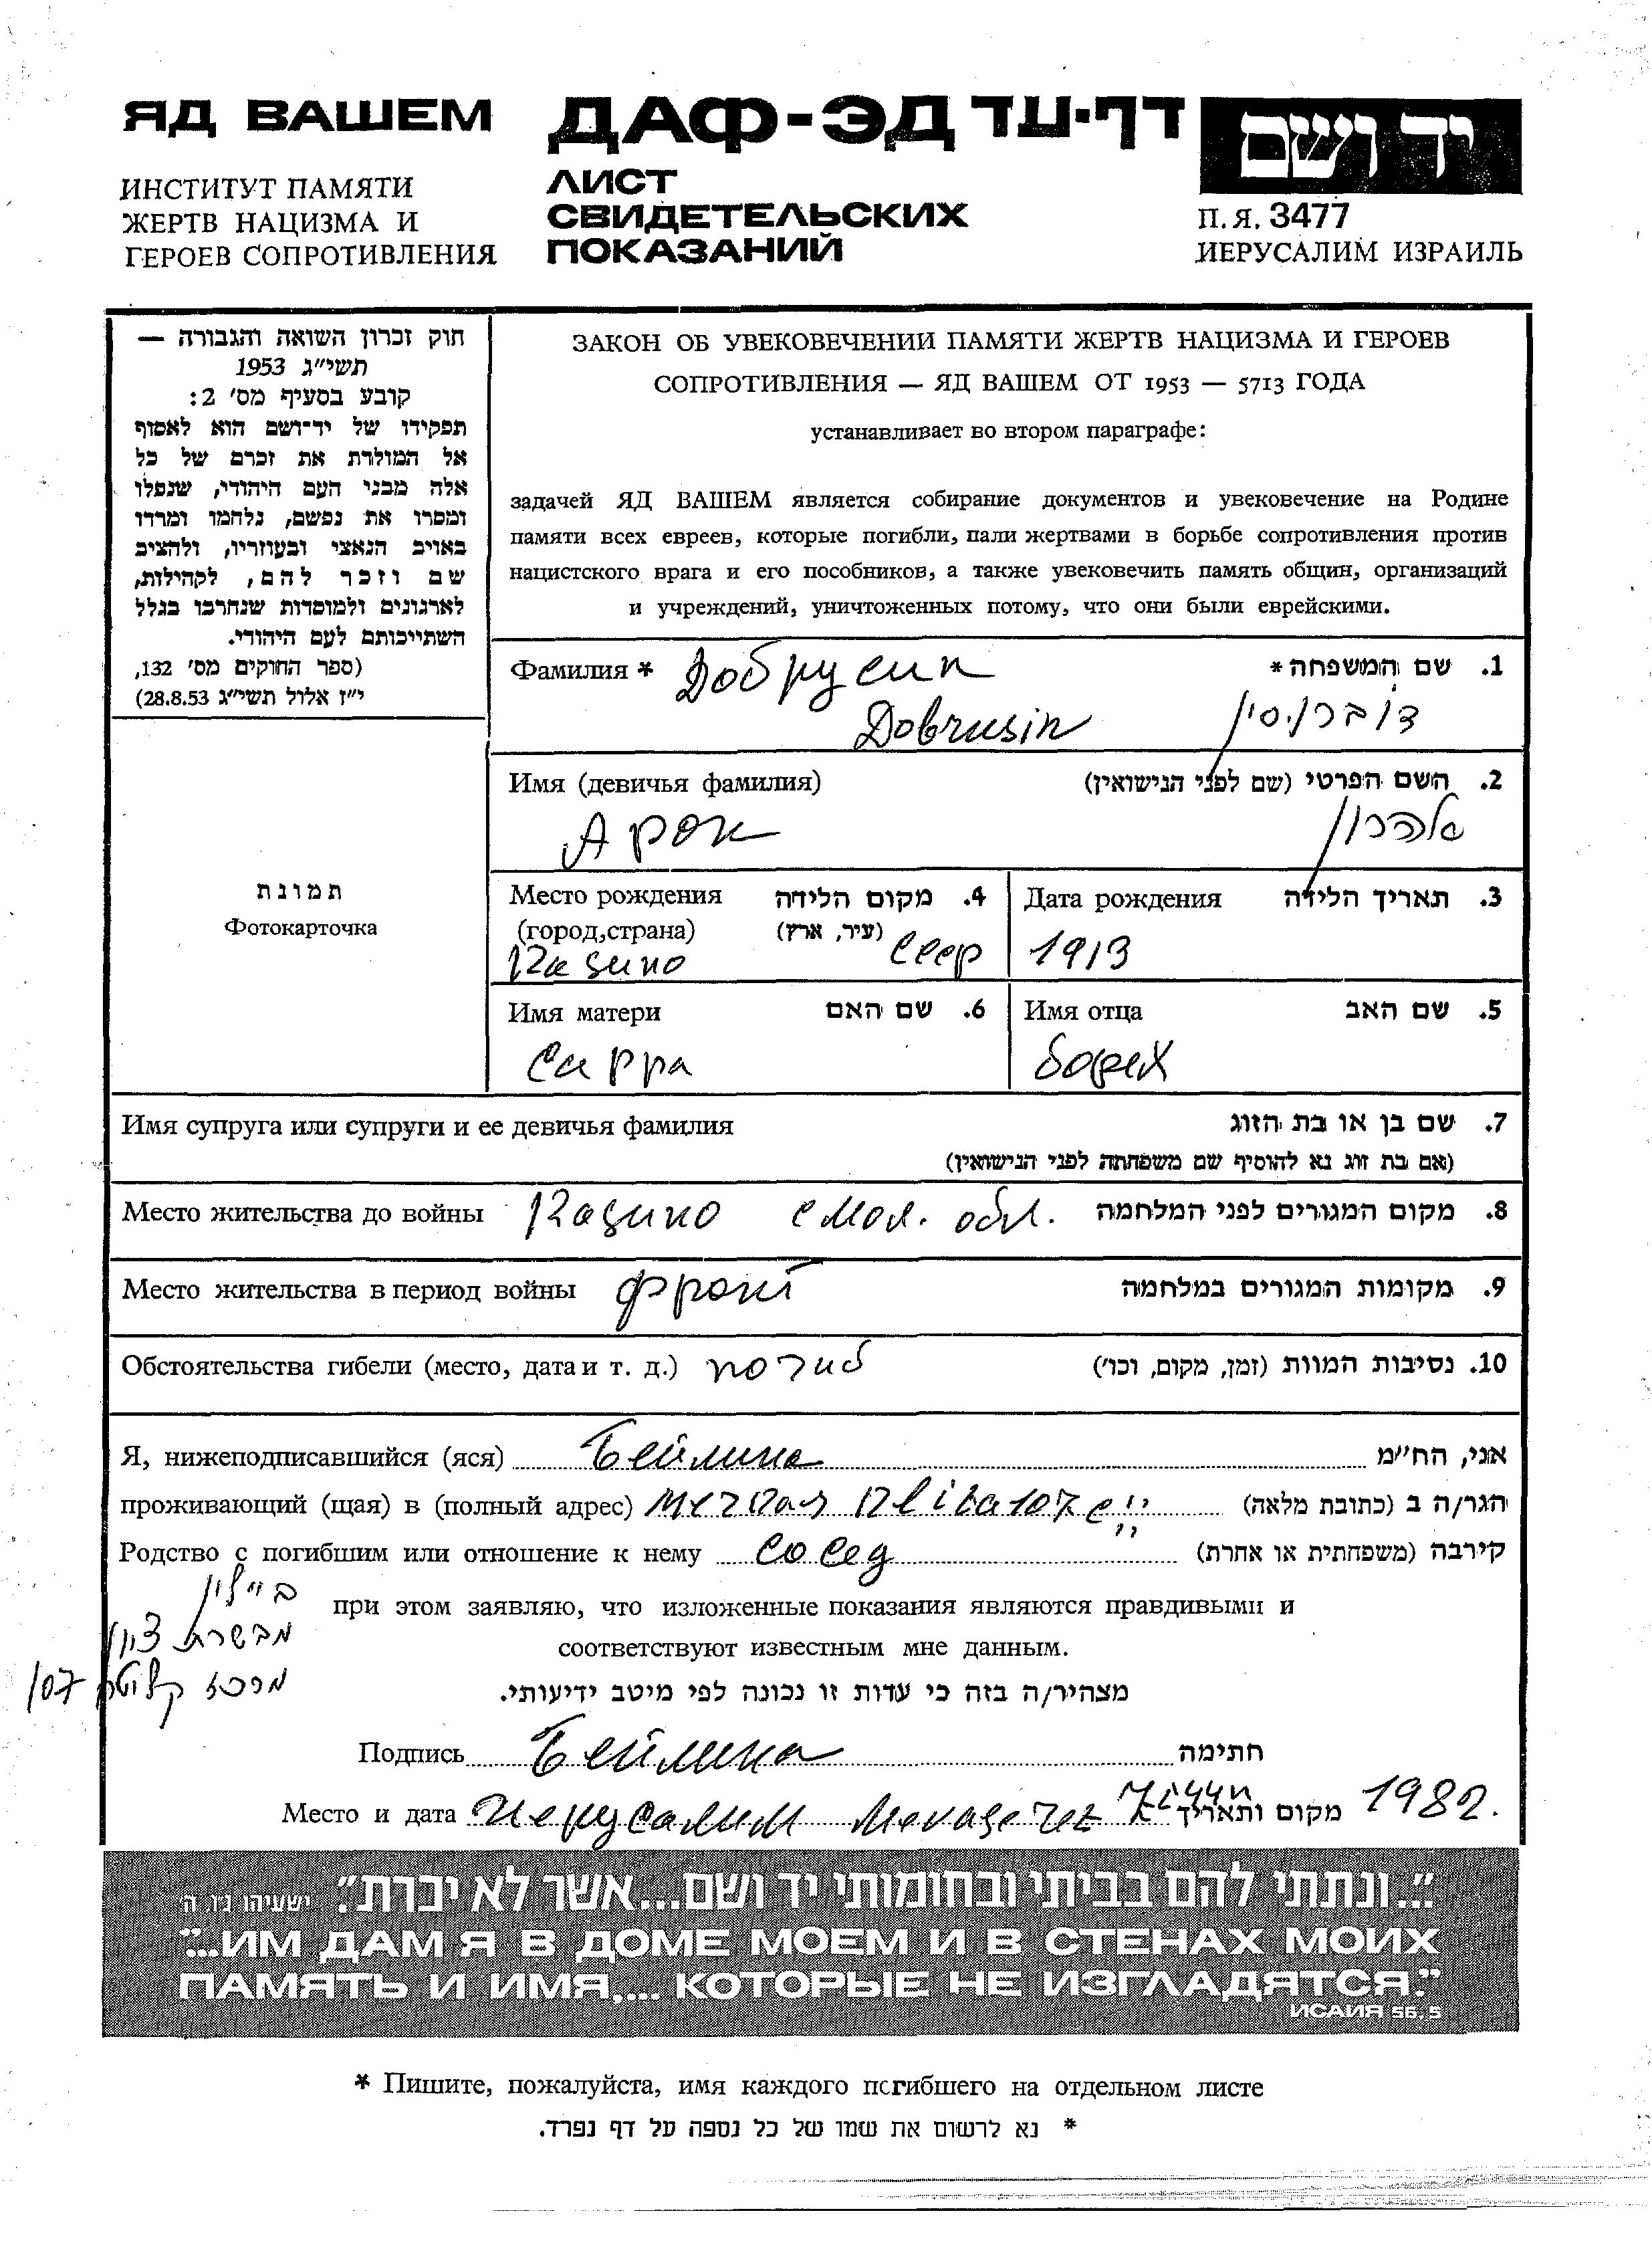 ЯД ВАШЕМ
ИНСТИТУТ ПАМЯТИ
ЖЕРТВ НАЦИЗМА И
ГЕРОЕВ СОПРОТИВЛЕНИЯ
ДАФ-ЭД דף-עד
ЛИСТ
СВИДЕТЕЛЬСКИХ
ПОКАЗАНИЙ
יד ושם
П.Я. 3477
ИЕРУСАЛИМ ИЗРАИЛЬ
חוק זכרון השואה והגבורה —
תשי״ג 1953
קובע בסעיף מס׳ 2:
תפקידו של יד־ושם הוא לאסוף
אל המולדת את זכרם של כל
אלה מבני העם היהודי, שנפלו
ומסרו את נפשם, נלחמו ומרדו
באויב הנאצי ובעוזריו, ולהציב
שם וזכר להם, לקהילות,
לארגונים ולמוסדות שנחרבו בגלל
השתייכותם לעם היהודי.
(ספר החוקים מס׳ 132,
י״ז אלול תשי״ג 28.8.53)
ЗАКОН ОБ УВЕКОВЕЧЕНИИ ПАМЯТИ ЖЕРТВ НАЦИЗМА И ГЕРОЕВ
СОПРОТИВЛЕНИЯ — ЯД ВАШЕМ ОТ 1953 — 5713 ГОДА
устанавливает во втором параграфе:
задачей ЯД ВАШЕМ является собирание документов и увековечение на Родине
памяти всех евреев, которые погибли, пали жертвами в борьбе сопротивления против
нацистского врага и его пособников, а также увековечить память общин, организаций
и учреждений, уничтоженных потому, что они были еврейскими.
Фамилия * Добрусин 1. שם המשפחה *
Dobrusin דוברוסין
Имя (девичья фамилия) 2. השם הפרטי (שם לפני הנישואין)
Арон אהרון
Место рождения 4. מקום הלידה
(город,страна) (עיר, ארץ)
Казино ссср
Дата рождения 3. תאריך הלידה
1913
Имя матери 6. שם האם
Сарра
Имя отца 5. שם האב
Борех
תמונת
Фотокарточка
Имя супруга или супруги и ее девичья фамилия 7. שם בן או בת הזוג
(אם בת זוג נא להוסיף שם משפחתה לפני הנישואין)
Место жительства до войны Казино смол. обл. 8. מקום המגורים לפני המלחמה
Место жительства в период войны фронт 9. מקומות המגורים במלחמה
Обстоятельства гибели (место, дата и т. д.) погиб 10. נסיבות המוות (זמן, מקום, וכו׳)
Я, нижеподписавшийся (яся) Бейлина אני, הח״מ
проживающий (щая) в (полный адрес) הגר/ה ב (כתובת מלאה)
Родство с погибшим или отношение к нему сосед קירבה (משפחתית או אחרת)
ביילין
מבשרת ציון
מרכז קליטה 107
при этом заявляю, что изложенные показания являются правдивыми и
соответствуют известным мне данным.
מצהיר/ה בזה כי עדות זו נכונה לפי מיטב ידיעותי.
Подпись Бейлина חתימה
Место и дата Иерусалим מקום ותאריך 1982.
״..ונתתי להם בביתי ובחומותי יד ושם...אשר לא יכרת״. ישעיהו נ״ו, ה׳
"...ИМ ДАМ Я В ДОМЕ МОЕМ И В СТЕНАХ МОИХ
ПАМЯТЬ И ИМЯ,... КОТОРЫЕ НЕ ИЗГЛАДЯТСЯ."
ИСАИЯ 56,5
* Пишите, пожалуйста, имя каждого погибшего на отдельном листе
* נא לרשום את שמו של כל נספה על דף נפרד.